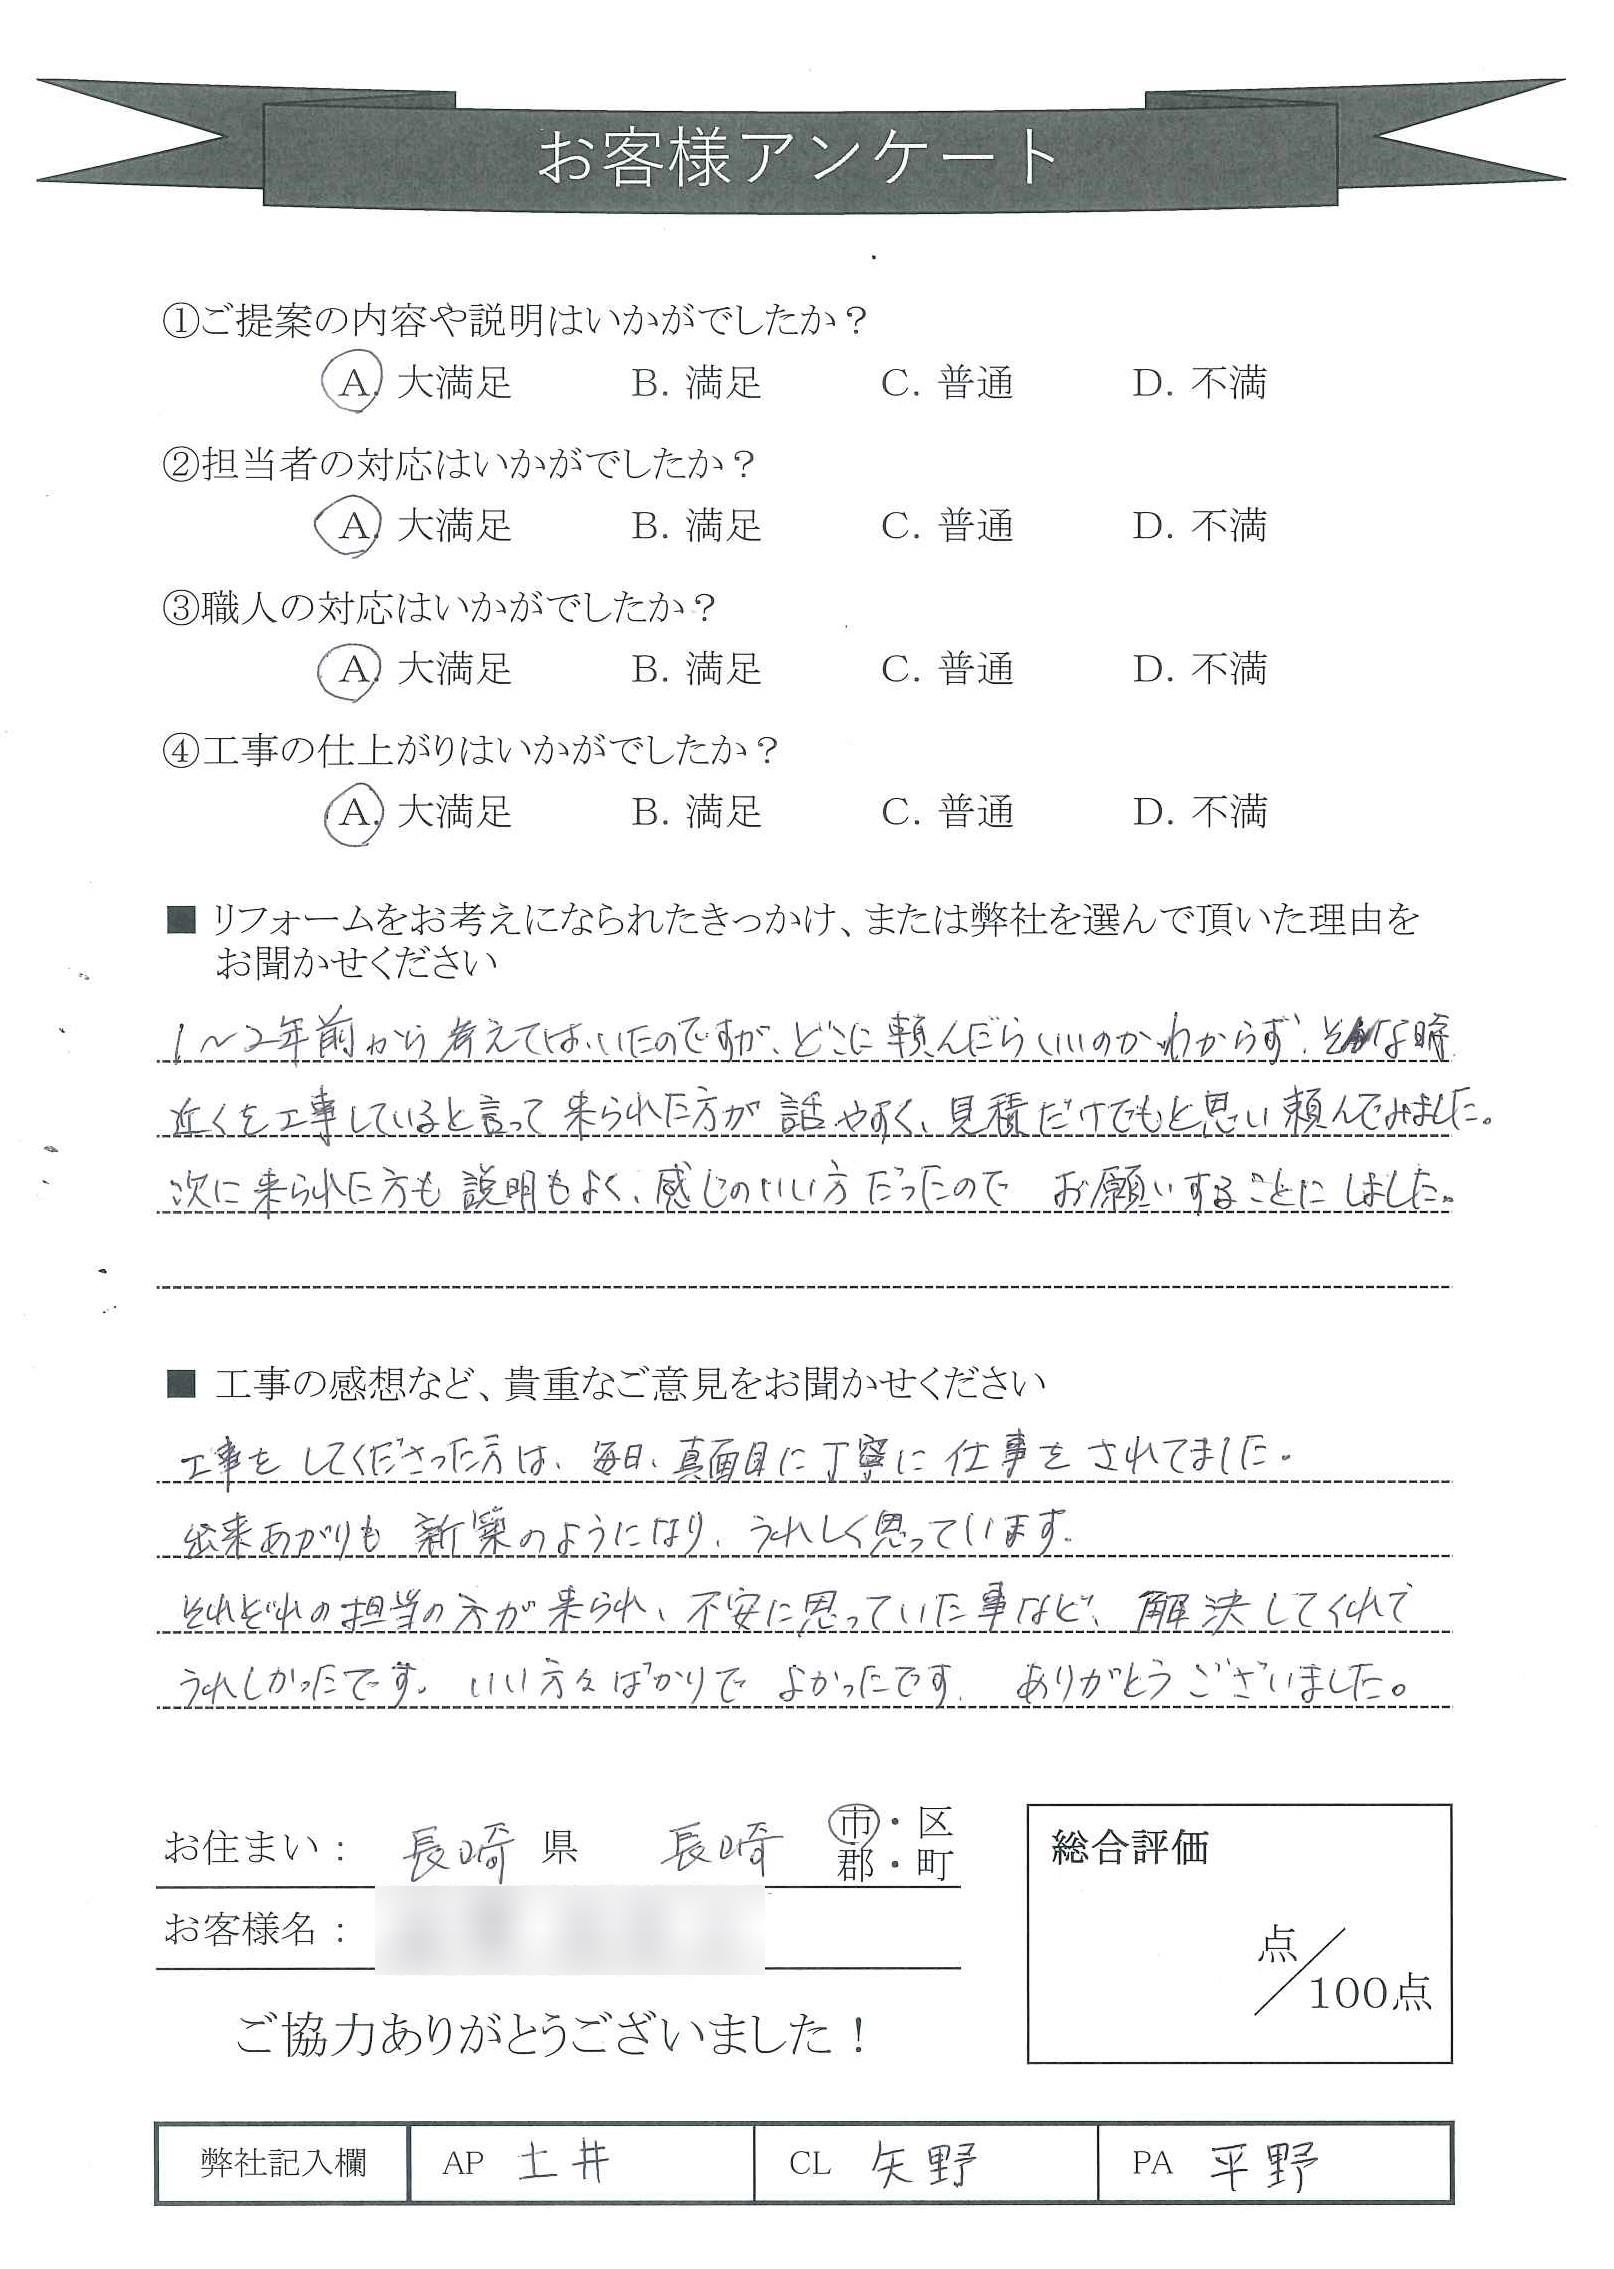 お客様アンケート
①ご提案の内容や説明はいかがでしたか？
A. 大満足 B. 満足 C. 普通 D. 不満
②担当者の対応はいかがでしたか？
A. 大満足 B. 満足 C. 普通 D. 不満
③職人の対応はいかがでしたか？
A. 大満足 B. 満足 C. 普通 D. 不満
④工事の仕上がりはいかがでしたか？
A. 大満足 B. 満足 C. 普通 D. 不満
■ リフォームをお考えになられたきっかけ、または弊社を選んで頂いた理由を
お聞かせください
1～2年前から考えてはいたのですが、どこに頼んだらいいのかわからず、そんな時
近くを工事していると言って来られた方が話やすく、見積だけでもと思い頼んでみました。
次に来られた方も説明もよく、感じのいい方だったのでお願いすることにしました。
■ 工事の感想など、貴重なご意見をお聞かせください
工事をしてくださった方は、毎日、真面目に丁寧に仕事をされてました。
出来あがりも新築のようになり、うれしく思っています。
それぞれの担当の方が来られ、不安に思っていた事など、解決してくれて
うれしかったです。いい方々ばかりでよかったです。ありがとうございました。
お住まい： 長崎 県 長崎 市・区
郡・町
お客様名：
総合評価
点／100点
ご協力ありがとうございました！
弊社記入欄 AP 土井 CL 矢野 PA 平野